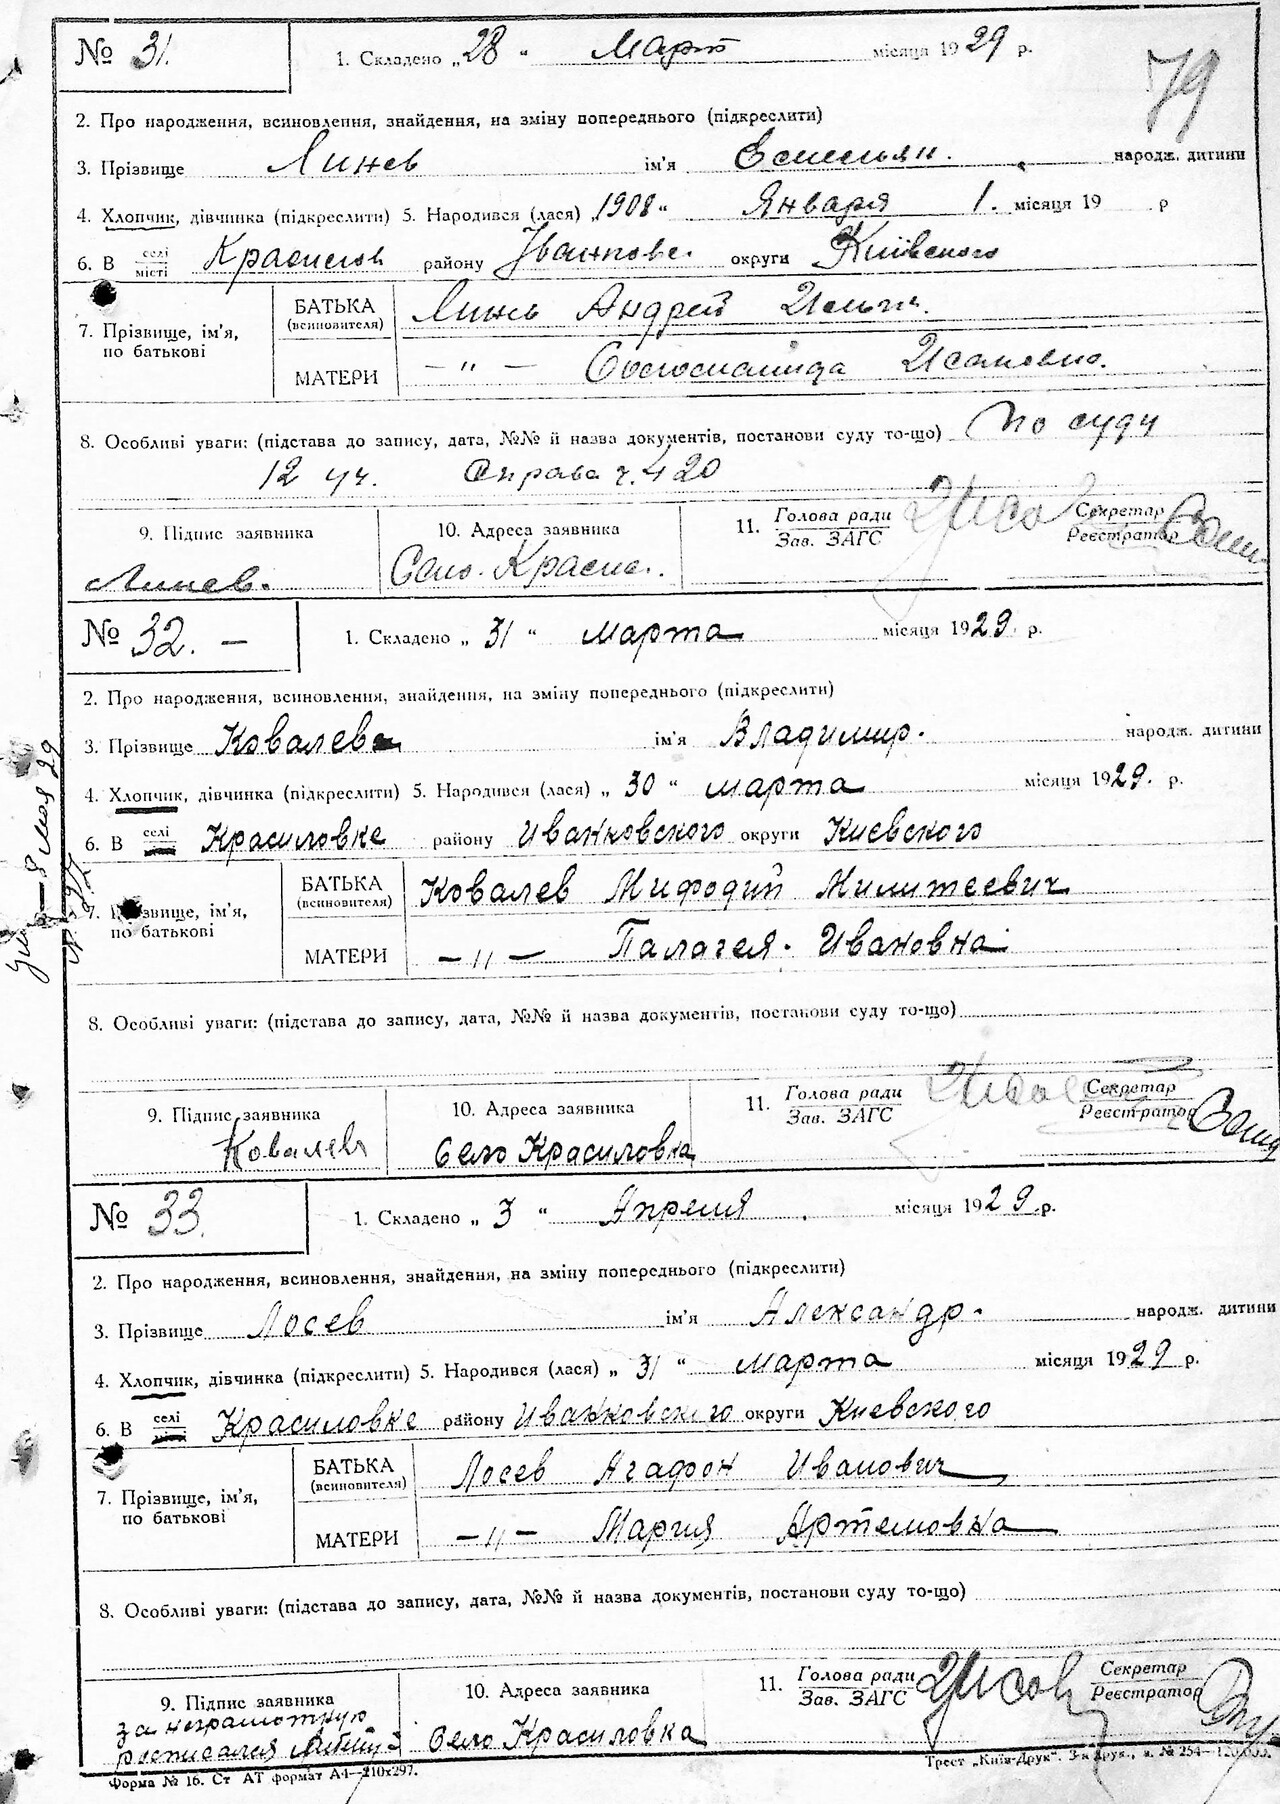 № 31. 1. Складено „28“ Март місяця 1929 р.
79
2. Про народження, всиновлення, знайдення, на зміну попереднього (підкреслити)
3. Прізвище Линев ім'я Емельян. народж. дитини
4. Хлопчик, дівчинка (підкреслити) 5. Народився (лася) „1908“ Января 1. місяця 19 р
6. В селі місті району округи Київского
7. Прізвище, ім'я, по батькові
БАТЬКА (всиновителя) Линь Андрей
МАТЕРИ —〃—
8. Особливі уваги: (підстава до запису, дата, №№ й назва документів, постанови суду то-що) По суду
12 уч. Справа ч. 420
9. Підпис заявника 10. Адреса заявника 11. Голова ради Зав. ЗАГС Секретар Реєстратор
Линев. Село. Красил.
№ 32. — 1. Складено „31“ марта місяця 1929. р.
2. Про народження, всиновлення, знайдення, на зміну попереднього (підкреслити)
3. Прізвище Ковалев ім'я Владимир. народж. дитини
4. Хлопчик, дівчинка (підкреслити) 5. Народився (лася) „30“ марта місяця 1929. р.
6. В селі Красиловке району Иванковского округи Киевского
7. Прізвище, ім'я, по батькові
БАТЬКА (всиновителя) Ковалев Мифодий Милитеевич
МАТЕРИ —〃— Палагея. Ивановна
8. Особливі уваги: (підстава до запису, дата, №№ й назва документів, постанови суду то-що)
9. Підпис заявника 10. Адреса заявника 11. Голова ради Зав. ЗАГС Секретар Реєстратор
Ковалев Село Красиловка
№ 33. 1. Складено „3“ Апреля місяця 1929 р.
2. Про народження, всиновлення, знайдення, на зміну попереднього (підкреслити)
3. Прізвище Лосев ім'я Александр. народж. дитини
4. Хлопчик, дівчинка (підкреслити) 5. Народився (лася) „31“ марта місяця 1929 р.
6. В селі Красиловке району Иванковского округи Киевского
7. Прізвище, ім'я, по батькові
БАТЬКА (всиновителя) Лосев Агафон Иванович
МАТЕРИ —〃— Мария Артемовна
8. Особливі уваги: (підстава до запису, дата, №№ й назва документів, постанови суду то-що)
9. Підпис заявника 10. Адреса заявника 11. Голова ради Зав. ЗАГС Секретар Реєстратор
за неграмотную
росписался Село Красиловка
Форма № 16. Ст АТ формат А4—210х297. Трест „Київ-Друк“. 3-я друк., з. № 254—120.000.